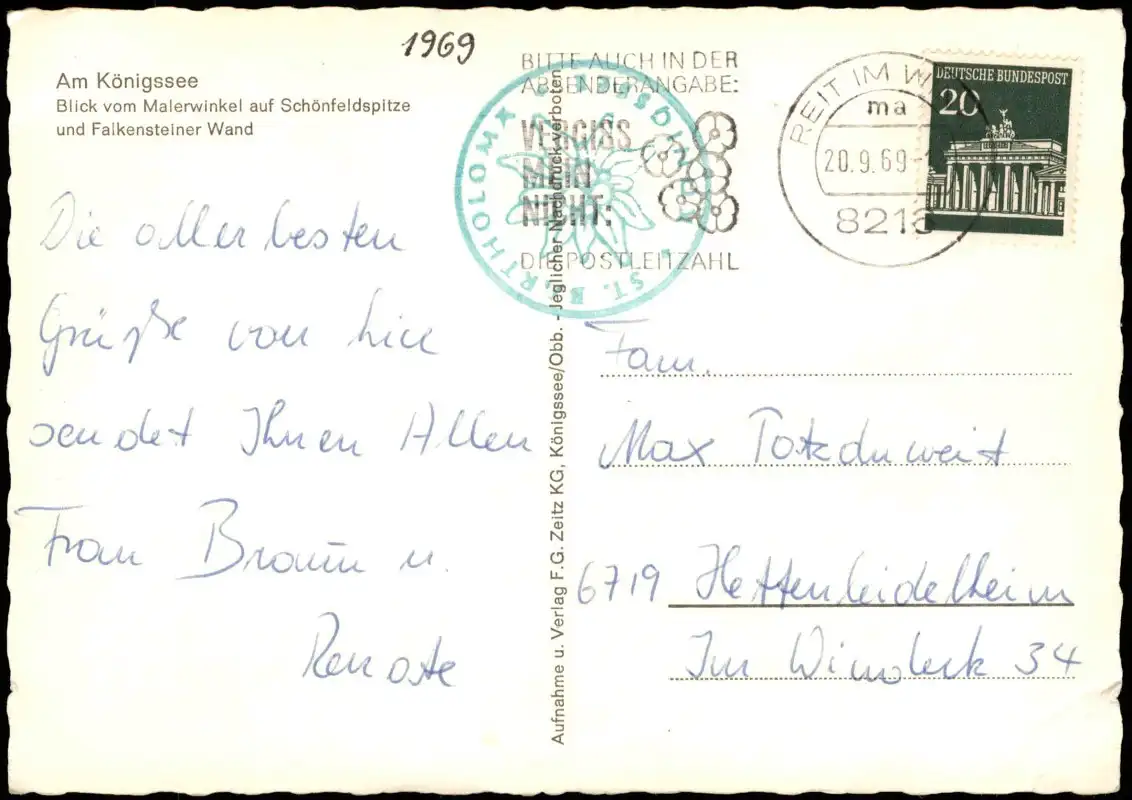 1969
Am Königssee
Blick vom Malerwinkel auf Schönfeldspitze
und Falkensteiner Wand
Die allerbesten
Grüße von hier
sendet Ihnen Allen
Frau Braun u.
Renate
BITTE AUCH IN DER
ABSENDERANGABE:
VERGISS
MEIN
NICHT:
DIE POSTLEITZAHL
ST. BARTHOLOMÄ
REIT IM W
ma
20.9.69
8213
DEUTSCHE BUNDESPOST
20
Aufnahme u. Verlag F.G. Zeitz KG, Königssee/Obb. - Jeglicher Nachdruck verboten
Fam.
Max Totzduweit
6719 Hettenleidelheim
Im Windeck 34